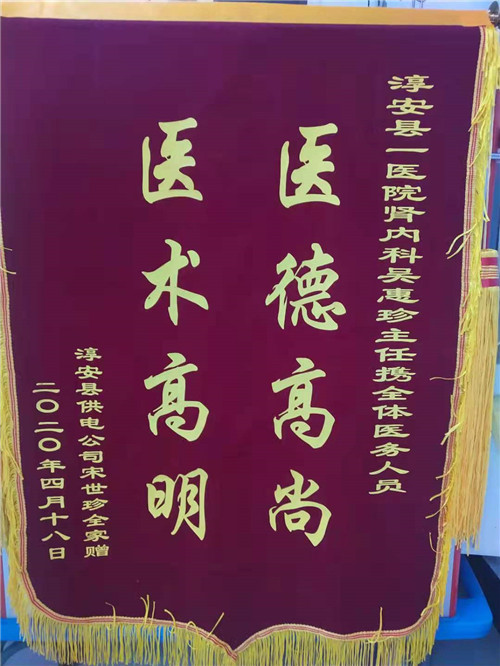 淳安县一医院肾内科吴惠珍主任携全体医务人员
医德高尚
医术高明
淳安县供电公司宋世珍全家赠
二〇二〇年四月十八日